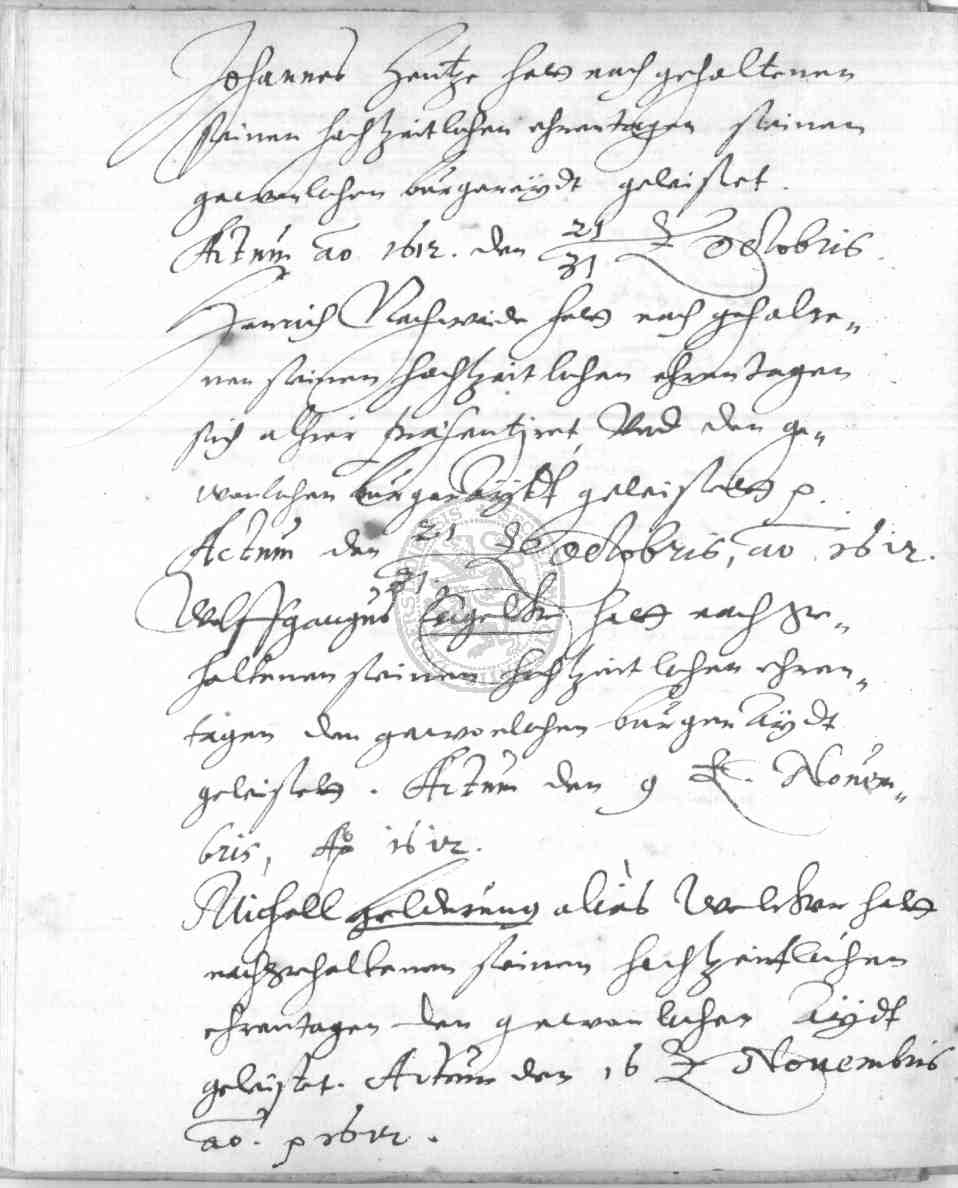 Johannes Hentze hatt nach gehaltenen
seinen hochtzeitlichen ehrentagen seinen
gewonlichen bürgereydt geleistet.
Actum ao 1612. den 21/31 Octobris.
Henrich Rachweide hatt nach gehalte„
nen seinen hochtzeitlichen ehrentagen
sich alhier präsentiret Vnd den ge„
wonlichen bürger Aydt geleistett p.
Actum den 21/31 8 Octobris, ao 1612.
Wolffgangus Engelhar hatt nach ge„
haltenen seinen hochtzeitlichen ehren„
tagen den gewonlichen bürger Aydt
geleistett. Actum den 9 Nouem„
bris, Ao 1612.
Michell Gelderung alias Welcker hatt
nach gehaltenen seinen hochtzeitlichen
ehrentagen den gewonlichen Aydt
geleistet. Actum den 16 Nouembris
ao. p 1612.